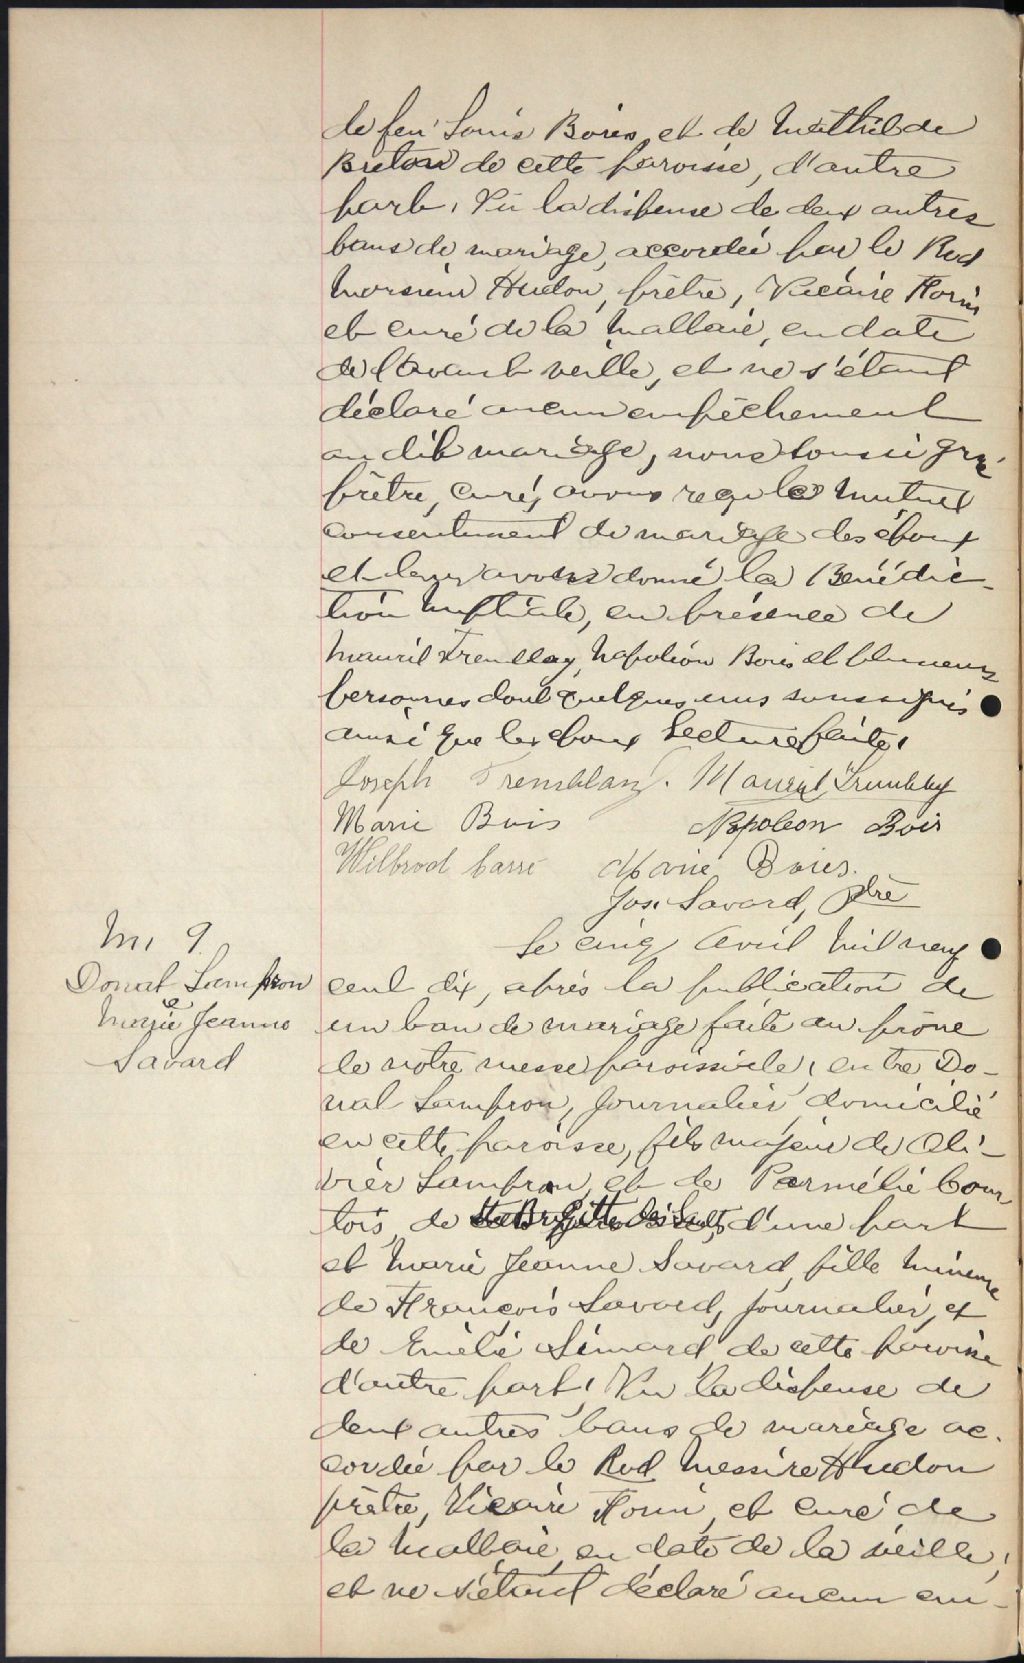 de feu Louis Boies et de Mathilde
Breton de cette paroisse, d'autre
part. Vu la dispense de deux autres
bans de mariage, accordée par le Rvd
Monsieur Hudon, prêtre, Vicaire Forin
et curé de la Malbaie, en date
de l'avant veille, et ne s'étant
déclaré aucun empêchement
au dit mariage, nous soussigné
prêtre, curé, avons reçu le mutuel
consentement de mariage des époux
et leur avons donné la Bénédic-
tion Nuptiale, en présence de
Mauril Tremblay, Napoléon Boies et plusieurs
personnes dont quelques uns soussignés
ainsi que les époux Lecture faite.
Joseph Tremblay. Mauril Tremblay
Marie Buis Napoleon Boir
Wilbrod Carré Marie Boies.
Jos. Savard, Ptre
M. 9
Donat Lampron
&
Marie Jeanne
Savard
Le cinq Avril Mil neuf
cent dix, après la publication de
un ban de mariage faite au prône
de notre messe paroissiale, entre Do-
nat Lampron, journalier domicilié
en cette paroisse, fils majeur de Oli-
vier Lampron, et de Parmélie Cour
tois, de Ste Brigitte des Saults, d'une part
et Marie Jeanne Savard, fille mineure
de François Savard, journalier, et
de Emélie Simard de cette paroisse
d'autre part. Vu la dispense de
deux autres bans de mariage ac.
cordée par le Rvd Messire Hudon
prêtre, Vicaire Forin, et curé de
la Malbaie, en date de la veille,
et ne s'étant déclaré aucun em-